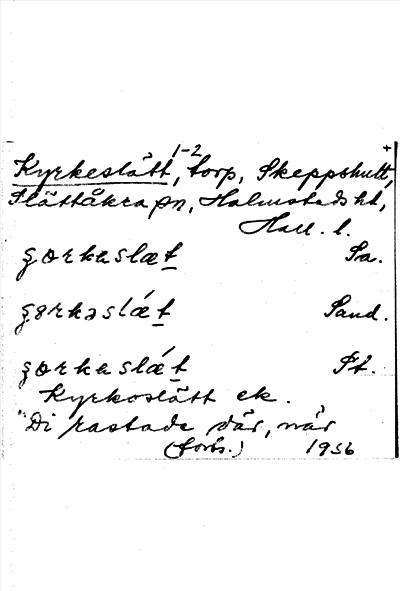 1-2 +
Kyrkeslätt, torp, Skeppshult,
Slättåkra sn, Halmstads hd,
Hall. l.
ȿorkaslæt Sa.
ȿɵrkəslǽt Sand.
ȿorkaslǽt Pt.
Kyrkoslätt ek.
"Di rastade där, når
(forts.) 1956